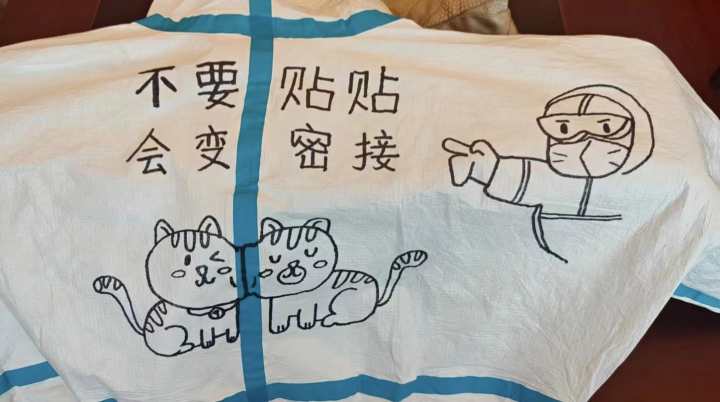 不要贴贴
会变密接